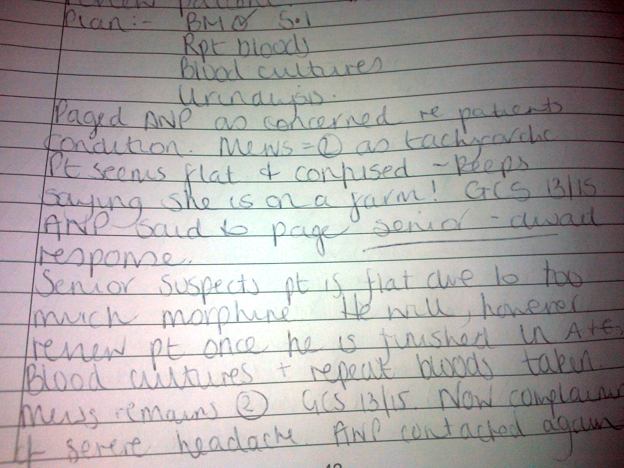 review patient
Plan:- BM ✓ 5.1
Rpt bloods
Blood cultures
Urinalysis.
Paged ANP as concerned re patients
condition. Mews = ② as tachycardic
Pt seems flat & confused - keeps
saying she is on a farm! GCS 13/15
ANP said to page senior - await
response.
Senior suspects pt is flat due to too
much morphine He will, however
review pt once he is finished in A+E
Blood cultures + repeat bloods taken
Mews remains ② GCS 13/15. Now complains
of severe headache ANP contacted again